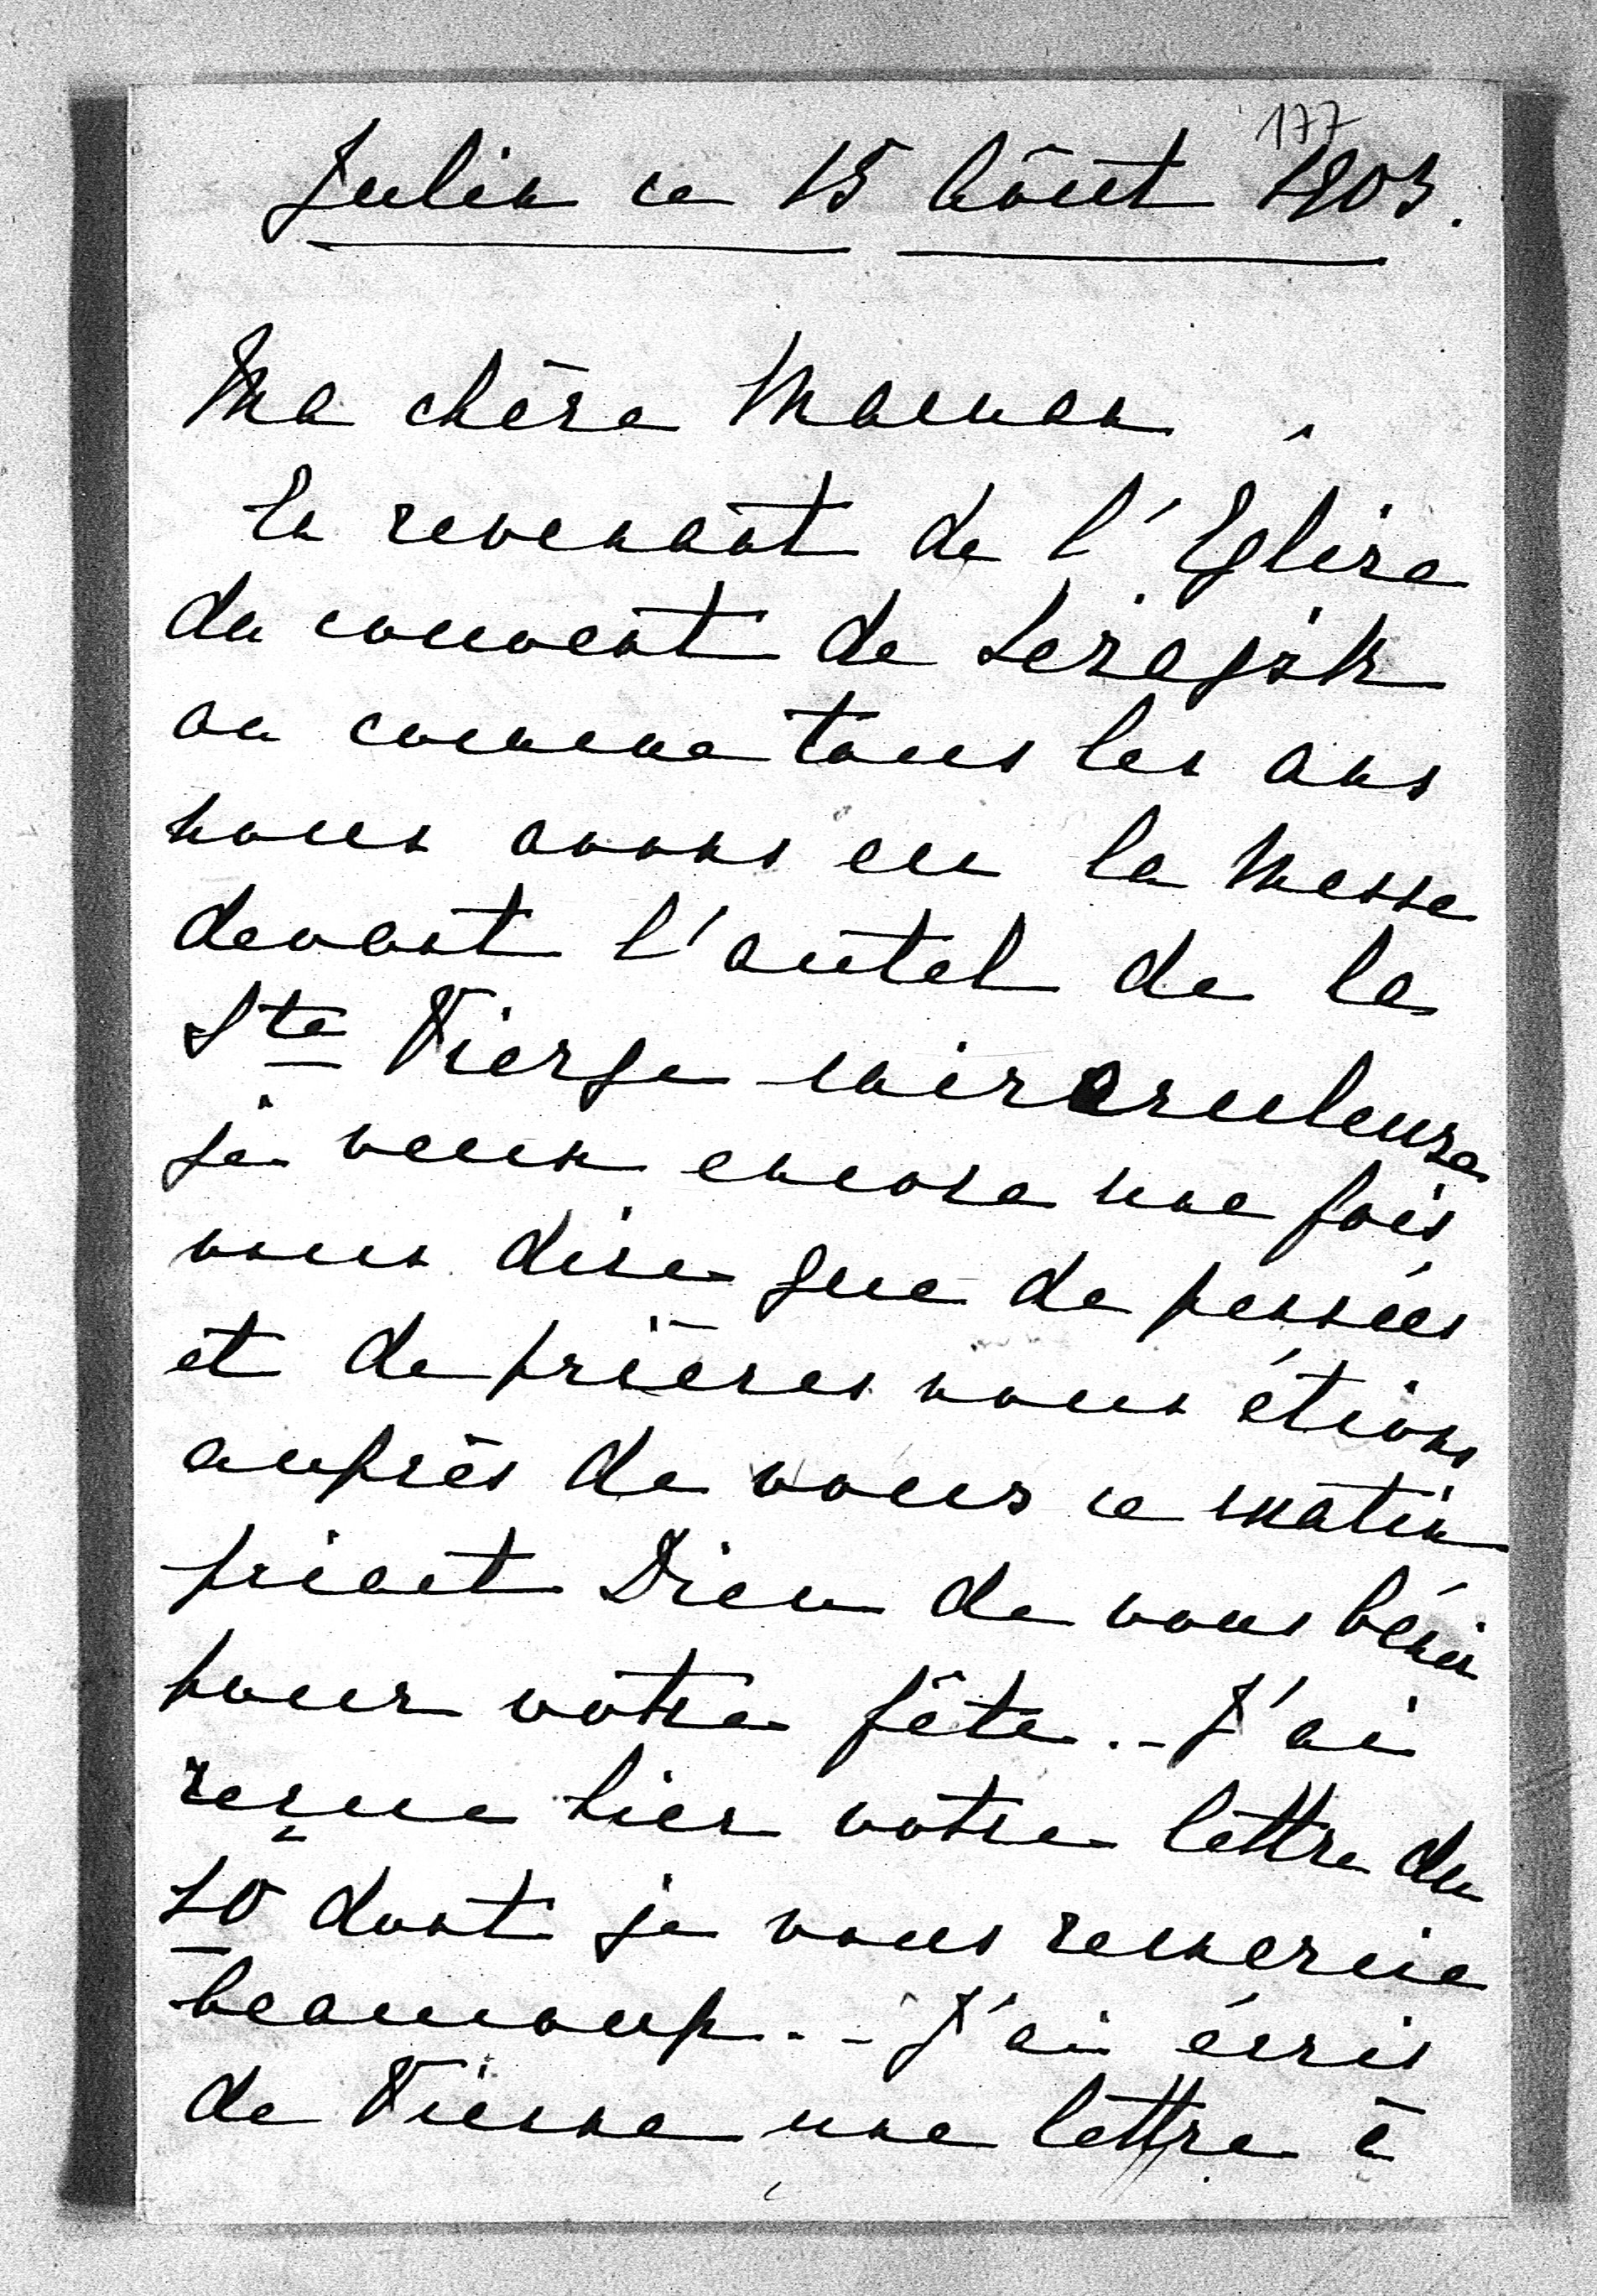 177
Julin ce 15 Août 1903.
Ma chère Maman,
En revenant de l'Eglise
du couvent de
ou comme tous les ans
nous avons eu la Messe
devant l'autel de la
Ste Vierge miraculeuse
je veux encore une fois
vous dire que de pensées
et de prières nous étions
auprès de vous ce matin
priant Dieu de vous bénir
pour votre fête. - J'ai
reçue hier votre lettre du
10 dont je vous remercie
beaucoup. - J'ai écris
de Vienne une lettre à